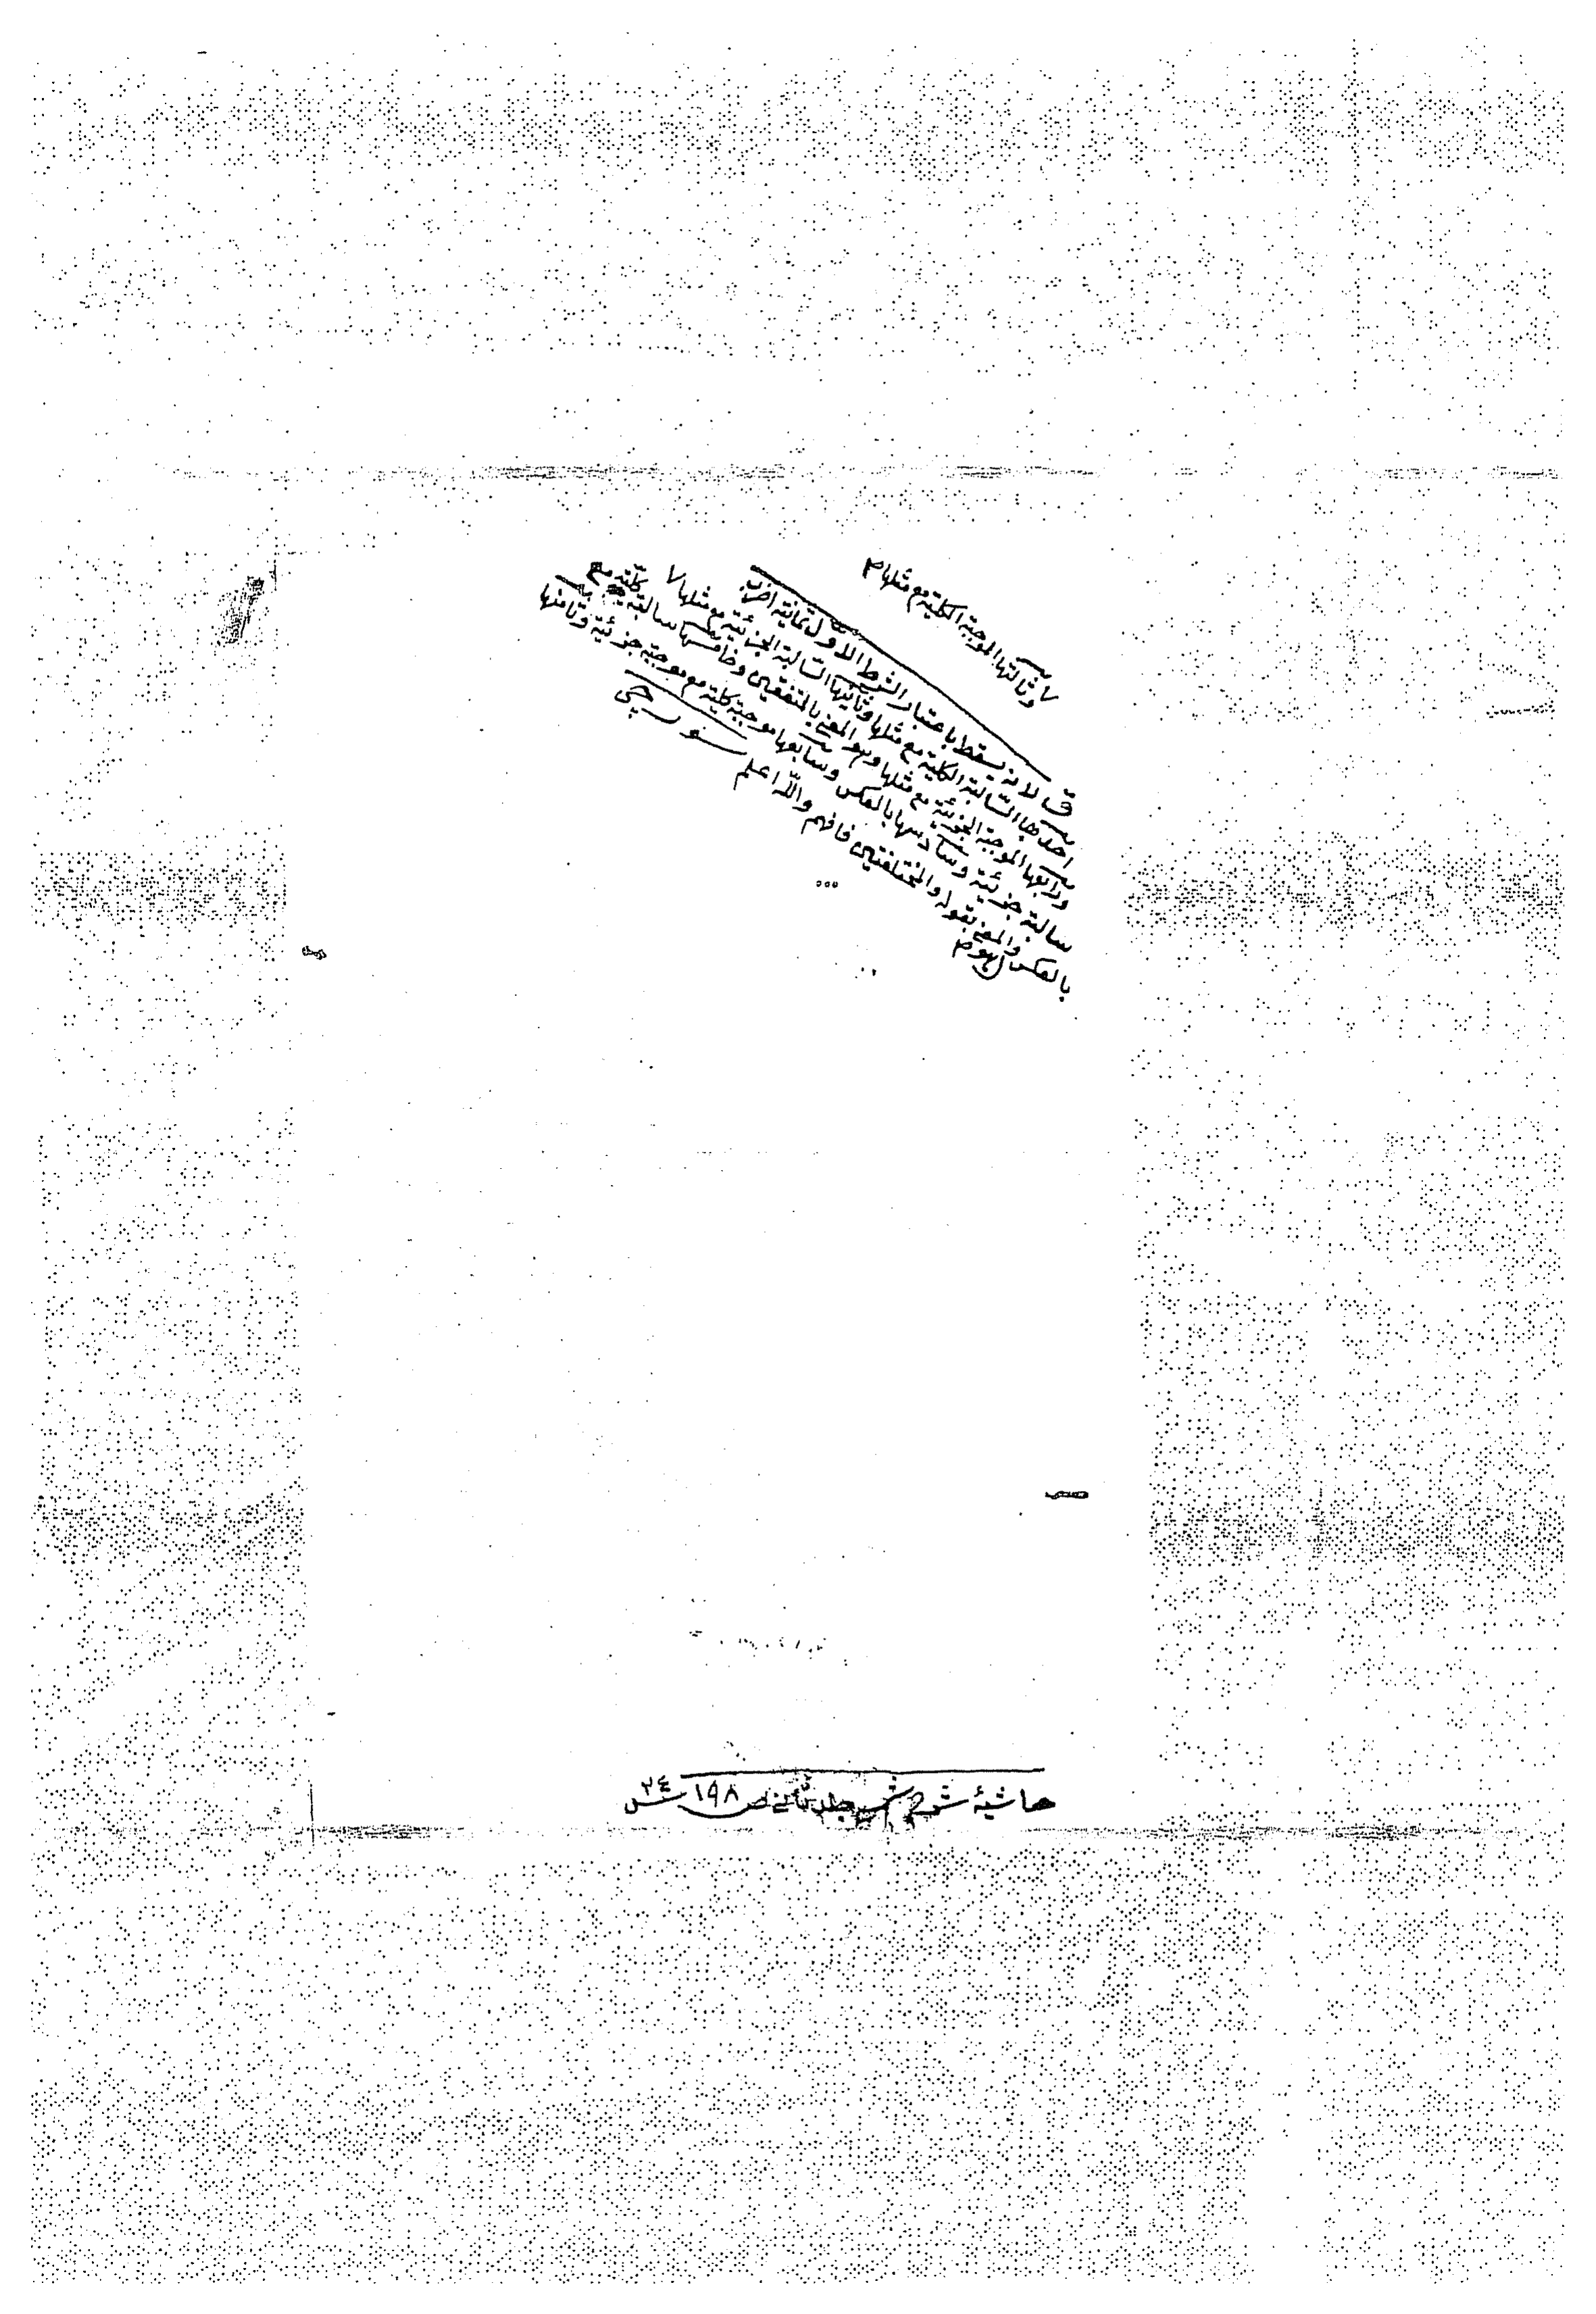 ٧ وثالثتها الموجبة الكلية مع مثلها م
ق لانه يسقط باعتبار الشرط الاول ثمانية اضرب
احدها السالبة الكلية مع مثلها وثانيها السالبة الجزئية مع مثلها ٧
ورابعها الموجبة الجزئية مع مثلها وهو المعنى بالمتفقين وخامسها سالبة كلية مع
سالبة جزئية وسادسها بالعكس وسابعها موجبة كلية مع موجبة جزئية وثامنها
بالعكس والمعنى بقوله والمختلفتين فافهم والله اعلم
حاشية شرح جلد ثانى ص ١٩٨ س ٢٤